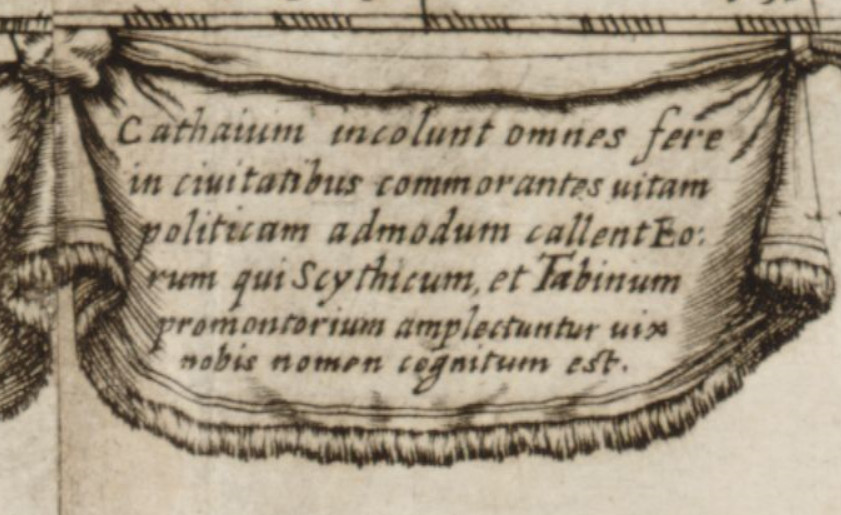 Cathaium incolunt omnes fere
in ciuitatibus commorantes uitam
politicam admodum callent Eo:
rum qui Scythicum, et Tabinum
promontorium amplectuntur uix
nobis nomen cognitum est.